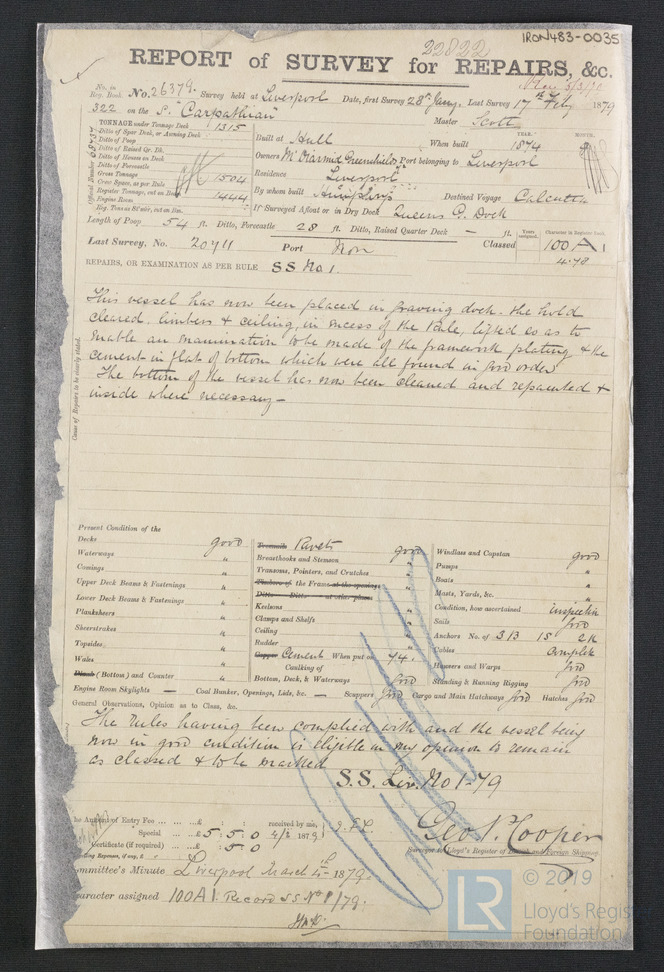 IRON483-0035
22822
REPORT of SURVEY for REPAIRS, &c.
No. in Reg. Book No. 26379. Survey held at Liverpool Date, first Survey 28th Jany. Last Survey 17th Feby 1879
322 on the S. "Carpathian" Master Scott
TONNAGE under Tonnage Deck 1315
Ditto of Spar Deck, or Awning Deck
Ditto of Poop
Ditto of Raised Qr. Dk.
Ditto of Houses on Deck
Ditto of Forecastle
Gross Tonnage 1504
Crew Space, as per Rule
Register Tonnage, cut on Beam 1444
Engine Room
Reg. Ton. as St'mr, cut on Bm.
Official Number
Built at Hull When built 1874
YEAR. MONTH.
Owners McDiarmid Greenshields Port belonging to Liverpool
Residence Liverpool
By whom built Humphrys Destined Voyage Calcutta
If Surveyed Afloat or in Dry Dock Queens G. Dock
Length of Poop 54 ft. Ditto, Forecastle 28 ft. Ditto, Raised Quarter Deck — ft.
Years assigned. Character in Register Book
Last Survey, No. 20711 Port Non Classed 100 A1
4.78
REPAIRS, OR EXAMINATION AS PER RULE SS No 1.
Cause of Repairs to be clearly stated.
This vessel has now been placed in graving dock. the hold
cleared, limbers & ceiling, in excess of the rule, lifted so as to
enable an examination to be made of the framework plating & the
cement in flat of bottom which were all found in good order
The bottom of the vessel has now been cleaned and repainted &
inside where necessary —
Present Condition of the
Decks good
Waterways "
Comings "
Upper Deck Beams & Fastenings "
Lower Deck Beams & Fastenings "
Planksheers "
Sheerstrakes "
Topsides "
Wales "
(Bottom) and Counter "
Treenails Rivets good
Breasthooks and Stemson "
Transoms, Pointers, and Crutches "
Timbers of the Frame at the openings
Ditto Ditto at other places
Keelsons "
Clamps and Shelfs "
Ceiling "
Rudder "
Copper Cement When put on 74.
Caulking of
Bottom, Deck, & Waterways good
Windlass and Capstan good
Pumps "
Boats "
Masts, Yards, &c. "
Condition, how ascertained inspection
Sails good
Anchors No. of 3 B 1 S 2 K
Cables Complete
Hawsers and Warps good
Standing & Running Rigging good
Engine Room Skylights — Coal Bunker, Openings, Lids, &c. — Scuppers good Cargo and Main Hatchways good Hatches good
General Observations, Opinion as to Class, &c.
The Rules having been complied with and the vessel being
now in good condition is eligible in my opinion to remain
as classed & to be marked
S.S. Liv. No 1-79
Amount of Entry Fee ... £ : : received by me,
Special ... £ 5 : 5 : 0 4/2 1879
Certificate (if required) ... £ : 5 : 0
Geo. N. Cooper
Surveyor to Lloyd's Register of British and Foreign Shipping.
Committee's Minute Liverpool March 4th 1879.
Character assigned 100A1. Record SS No 1/79.
© 2019
LR
Lloyd's Regis
Foundation